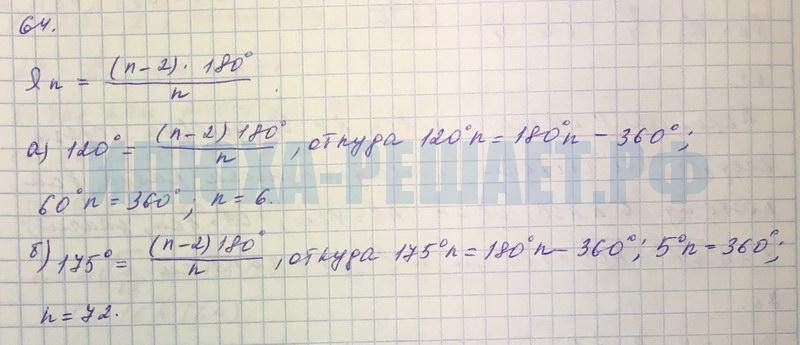 64.
αn = (n-2)· 180° / n .
а) 120° = (n-2) 180° / n , откуда 120°n = 180°n - 360°;
ИЛЮХА-РЕШАЕТ.РФ
60°n = 360°; n = 6.
б) 175° = (n-2) 180° / n , откуда 175°n = 180°n - 360°; 5°n = 360°;
n = 72.